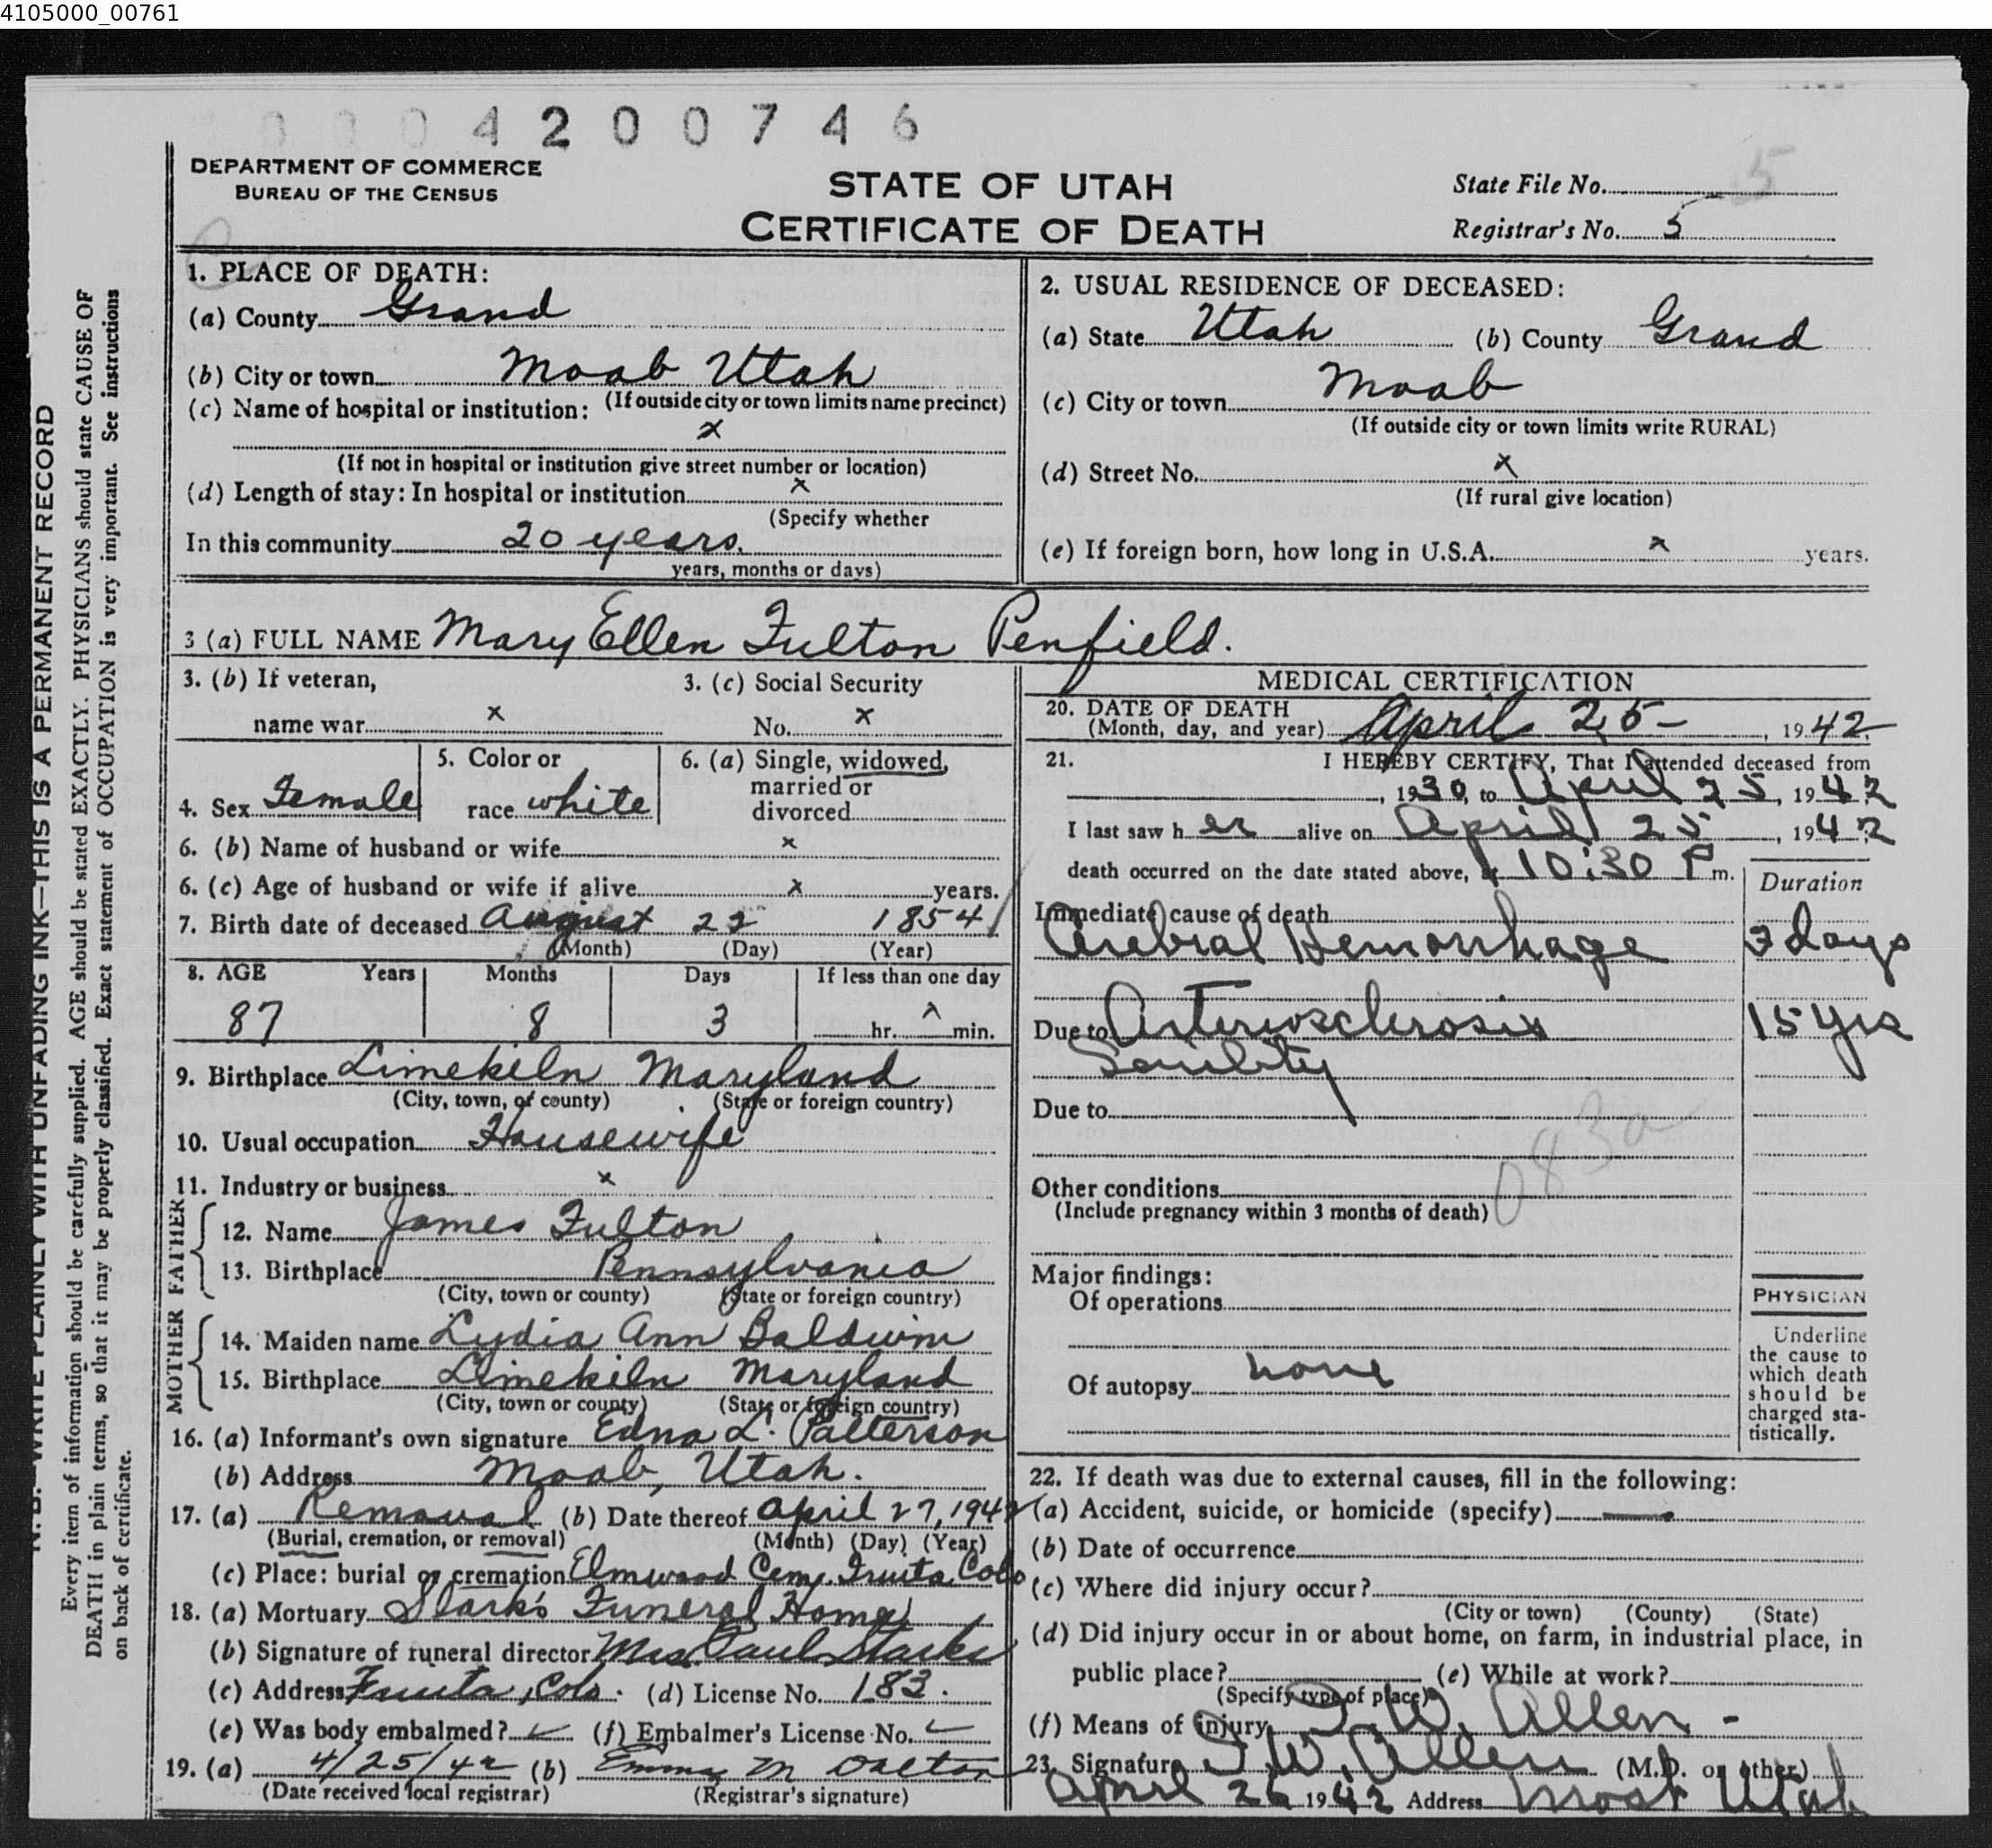 4105000_00761
0004200746
DEPARTMENT OF COMMERCE
BUREAU OF THE CENSUS
STATE OF UTAH
CERTIFICATE OF DEATH
State File No. 5
Registrar's No. 5
N. B.—WRITE PLAINLY WITH UNFADING INK—THIS IS A PERMANENT RECORD
Every item of information should be carefully supplied. AGE should be stated EXACTLY. PHYSICIANS should state CAUSE OF
DEATH in plain terms, so that it may be properly classified. Exact statement of OCCUPATION is very important. See instructions
on back of certificate.
1. PLACE OF DEATH:
(a) County Grand
(b) City or town Moab Utah
(c) Name of hospital or institution: (If outside city or town limits name precinct)
x
(If not in hospital or institution give street number or location)
(d) Length of stay: In hospital or institution x
(Specify whether
In this community 20 years.
years, months or days)
2. USUAL RESIDENCE OF DECEASED:
(a) State Utah (b) County Grand
(c) City or town Moab
(If outside city or town limits write RURAL)
(d) Street No. x
(If rural give location)
(e) If foreign born, how long in U.S.A. x years.
3 (a) FULL NAME Mary Ellen Fulton Penfield.
3. (b) If veteran, 3. (c) Social Security
name war x No. x
4. Sex Female
5. Color or
race white
6. (a) Single, widowed,
married or
divorced
6. (b) Name of husband or wife x
6. (c) Age of husband or wife if alive x years.
7. Birth date of deceased August 22 1854
(Month) (Day) (Year)
8. AGE Years Months Days If less than one day
87 8 3 hr. min.
9. Birthplace Limekiln Maryland
(City, town, or county) (State or foreign country)
10. Usual occupation Housewife
11. Industry or business x
FATHER
12. Name James Fulton
13. Birthplace Pennsylvania
(City, town or county) (State or foreign country)
MOTHER
14. Maiden name Lydia Ann Baldwin
15. Birthplace Limekiln Maryland
(City, town or county) (State or foreign country)
16. (a) Informant's own signature Edna L. Patterson
(b) Address Moab, Utah.
17. (a) Removal (b) Date thereof April 27, 1942
(Burial, cremation, or removal) (Month) (Day) (Year)
(c) Place: burial or cremation Elmwood Cem. Fruita, Colo
18. (a) Mortuary Stark's Funeral Home
(b) Signature of funeral director Mrs. Paul Starks
(c) Address Fruita, Colo. (d) License No. 183.
(e) Was body embalmed? ✓ (f) Embalmer's License No. ✓
19. (a) 4/25/42 (b) Emma M Dalton
(Date received local registrar) (Registrar's signature)
MEDICAL CERTIFICATION
20. DATE OF DEATH
(Month, day, and year) April 25- , 1942
21. I HEREBY CERTIFY, That I attended deceased from
, 1930, to April 25, 1942
I last saw her alive on April 25, 1942
death occurred on the date stated above, at 10:30 P m.
Duration
Immediate cause of death
Cerebral Hemorrhage 3 days
Due to Arteriosclerosis 15 yrs
Senility
Due to
083a
Other conditions
(Include pregnancy within 3 months of death)
Major findings:
Of operations
Of autopsy none
PHYSICIAN
Underline
the cause to
which death
should be
charged sta-
tistically.
22. If death was due to external causes, fill in the following:
(a) Accident, suicide, or homicide (specify) —
(b) Date of occurrence
(c) Where did injury occur?
(City or town) (County) (State)
(d) Did injury occur in or about home, on farm, in industrial place, in
public place? (e) While at work?
(Specify type of place)
(f) Means of injury I. W. Allen -
23. Signature I. W. Allen (M.D. or other)
April 26 1942 Address Moab Utah